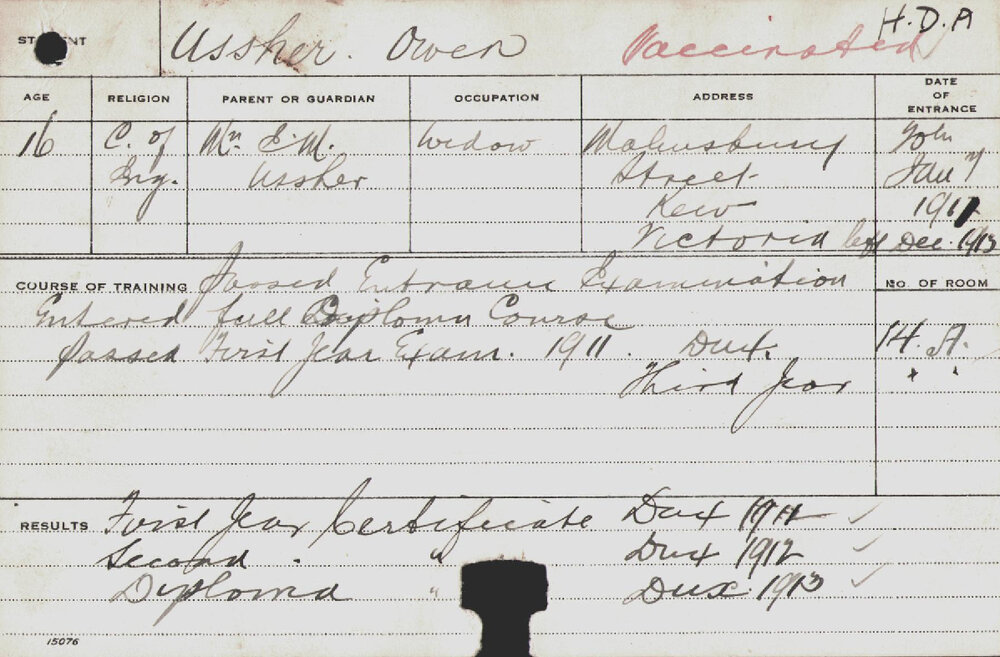 STUDENT Ussher. Owen Vaccinated H.D.A
AGE RELIGION PARENT OR GUARDIAN OCCUPATION ADDRESS DATE OF ENTRANCE
16 C. of Mrs E. M. Widow Malmsbury 30th
Eng. Ussher Street Jany
Kew 1911
Victoria left Dec. 1913
COURSE OF TRAINING Passed Entrance Examination No. OF ROOM
Entered full Diploma Course
Passed First Year Exam. 1911. Dux. 14. A.
Third Year " "
RESULTS First Year Certificate Dux 1911 ✓
Second " " Dux 1912 ✓
Diploma " Dux 1913 ✓
15076